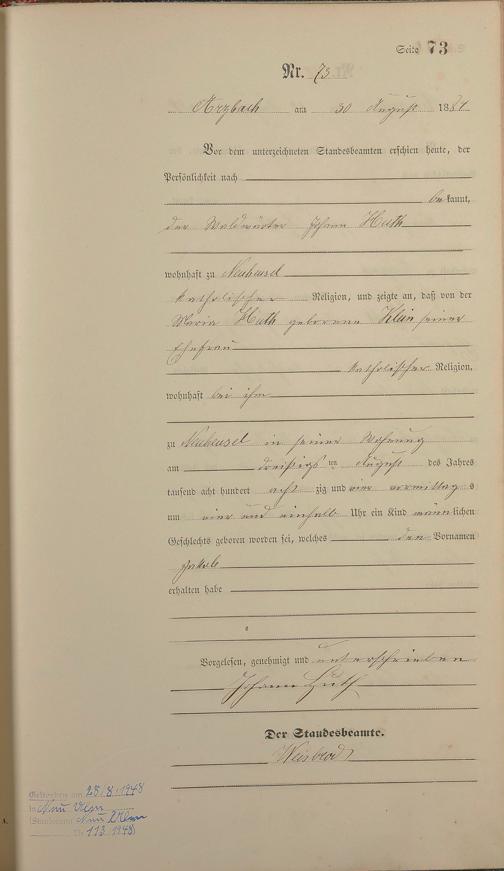 Seite 73
Nr. 73
Arzbach am 30 August 1884
Vor dem unterzeichneten Standesbeamten erschien heute, der
Persönlichkeit nach
bekannt,
der Waldwärter Johann Huth
wohnhaft zu Neuhäusel
katholischer Religion, und zeigte an, daß von der
Maria Huth geborene Klein seiner
Ehefrau
katholischer Religion,
wohnhaft bei ihm
zu Neuhäusel in seiner Wohnung
am dreißigsten August des Jahres
tausend acht hundert achtzig und vier vormittags
um vier und einhalb Uhr ein Kind männlichen
Geschlechts geboren worden sei, welches den Vornamen
Jakob
erhalten habe
Vorgelesen, genehmigt und unterschrieben
Johann Huth
Der Standesbeamte.
Weisbrod
Gestorben am 28.8.1948
in Neu Ulm
(Standesamt Neu Ulm
Nr 113 1948)